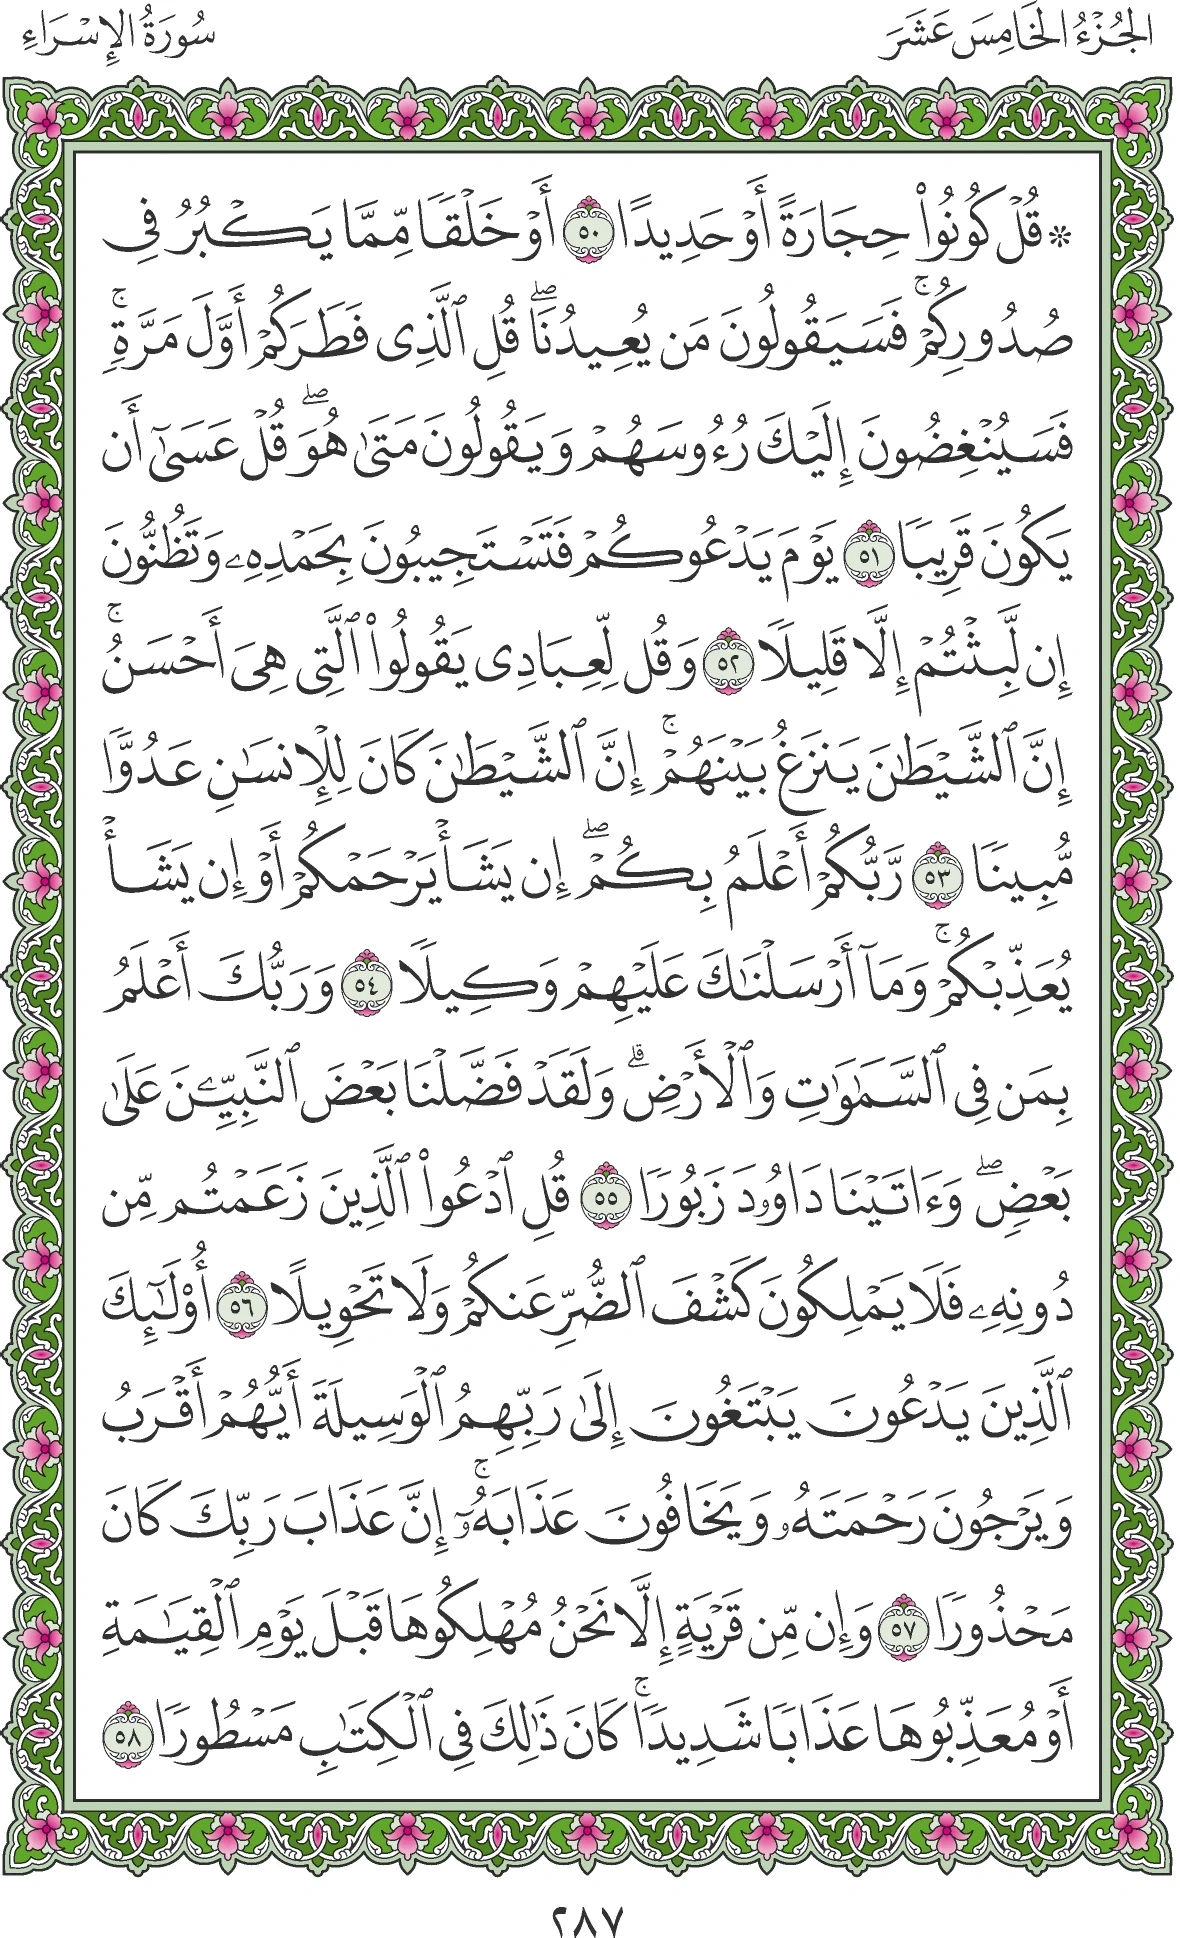 الجُزْءُ الخَامِسَ عَشَرَ
سُورَةُ الإِسْرَاءِ
۞ قُلْ كُونُوا۟ حِجَارَةً أَوْ حَدِيدًا ٥٠ أَوْ خَلْقًا مِّمَّا يَكْبُرُ فِى
صُدُورِكُمْ ۚ فَسَيَقُولُونَ مَن يُعِيدُنَا ۖ قُلِ ٱلَّذِى فَطَرَكُمْ أَوَّلَ مَرَّةٍ ۚ
فَسَيُنْغِضُونَ إِلَيْكَ رُءُوسَهُمْ وَيَقُولُونَ مَتَىٰ هُوَ ۖ قُلْ عَسَىٰٓ أَن
يَكُونَ قَرِيبًا ٥١ يَوْمَ يَدْعُوكُمْ فَتَسْتَجِيبُونَ بِحَمْدِهِۦ وَتَظُنُّونَ
إِن لَّبِثْتُمْ إِلَّا قَلِيلًا ٥٢ وَقُل لِّعِبَادِى يَقُولُوا۟ ٱلَّتِى هِىَ أَحْسَنُ ۚ
إِنَّ ٱلشَّيْطَـٰنَ يَنزَغُ بَيْنَهُمْ ۚ إِنَّ ٱلشَّيْطَـٰنَ كَانَ لِلْإِنسَـٰنِ عَدُوًّا
مُّبِينًا ٥٣ رَّبُّكُمْ أَعْلَمُ بِكُمْ ۖ إِن يَشَأْ يَرْحَمْكُمْ أَوْ إِن يَشَأْ
يُعَذِّبْكُمْ ۚ وَمَآ أَرْسَلْنَـٰكَ عَلَيْهِمْ وَكِيلًا ٥٤ وَرَبُّكَ أَعْلَمُ
بِمَن فِى ٱلسَّمَـٰوَٰتِ وَٱلْأَرْضِ ۗ وَلَقَدْ فَضَّلْنَا بَعْضَ ٱلنَّبِيِّـۧنَ عَلَىٰ
بَعْضٍ ۖ وَءَاتَيْنَا دَاوُۥدَ زَبُورًا ٥٥ قُلِ ٱدْعُوا۟ ٱلَّذِينَ زَعَمْتُم مِّن
دُونِهِۦ فَلَا يَمْلِكُونَ كَشْفَ ٱلضُّرِّ عَنكُمْ وَلَا تَحْوِيلًا ٥٦ أُو۟لَـٰٓئِكَ
ٱلَّذِينَ يَدْعُونَ يَبْتَغُونَ إِلَىٰ رَبِّهِمُ ٱلْوَسِيلَةَ أَيُّهُمْ أَقْرَبُ
وَيَرْجُونَ رَحْمَتَهُۥ وَيَخَافُونَ عَذَابَهُۥٓ ۚ إِنَّ عَذَابَ رَبِّكَ كَانَ
مَحْذُورًا ٥٧ وَإِن مِّن قَرْيَةٍ إِلَّا نَحْنُ مُهْلِكُوهَا قَبْلَ يَوْمِ ٱلْقِيَـٰمَةِ
أَوْ مُعَذِّبُوهَا عَذَابًا شَدِيدًا ۚ كَانَ ذَٰلِكَ فِى ٱلْكِتَـٰبِ مَسْطُورًا ٥٨
٢٨٧